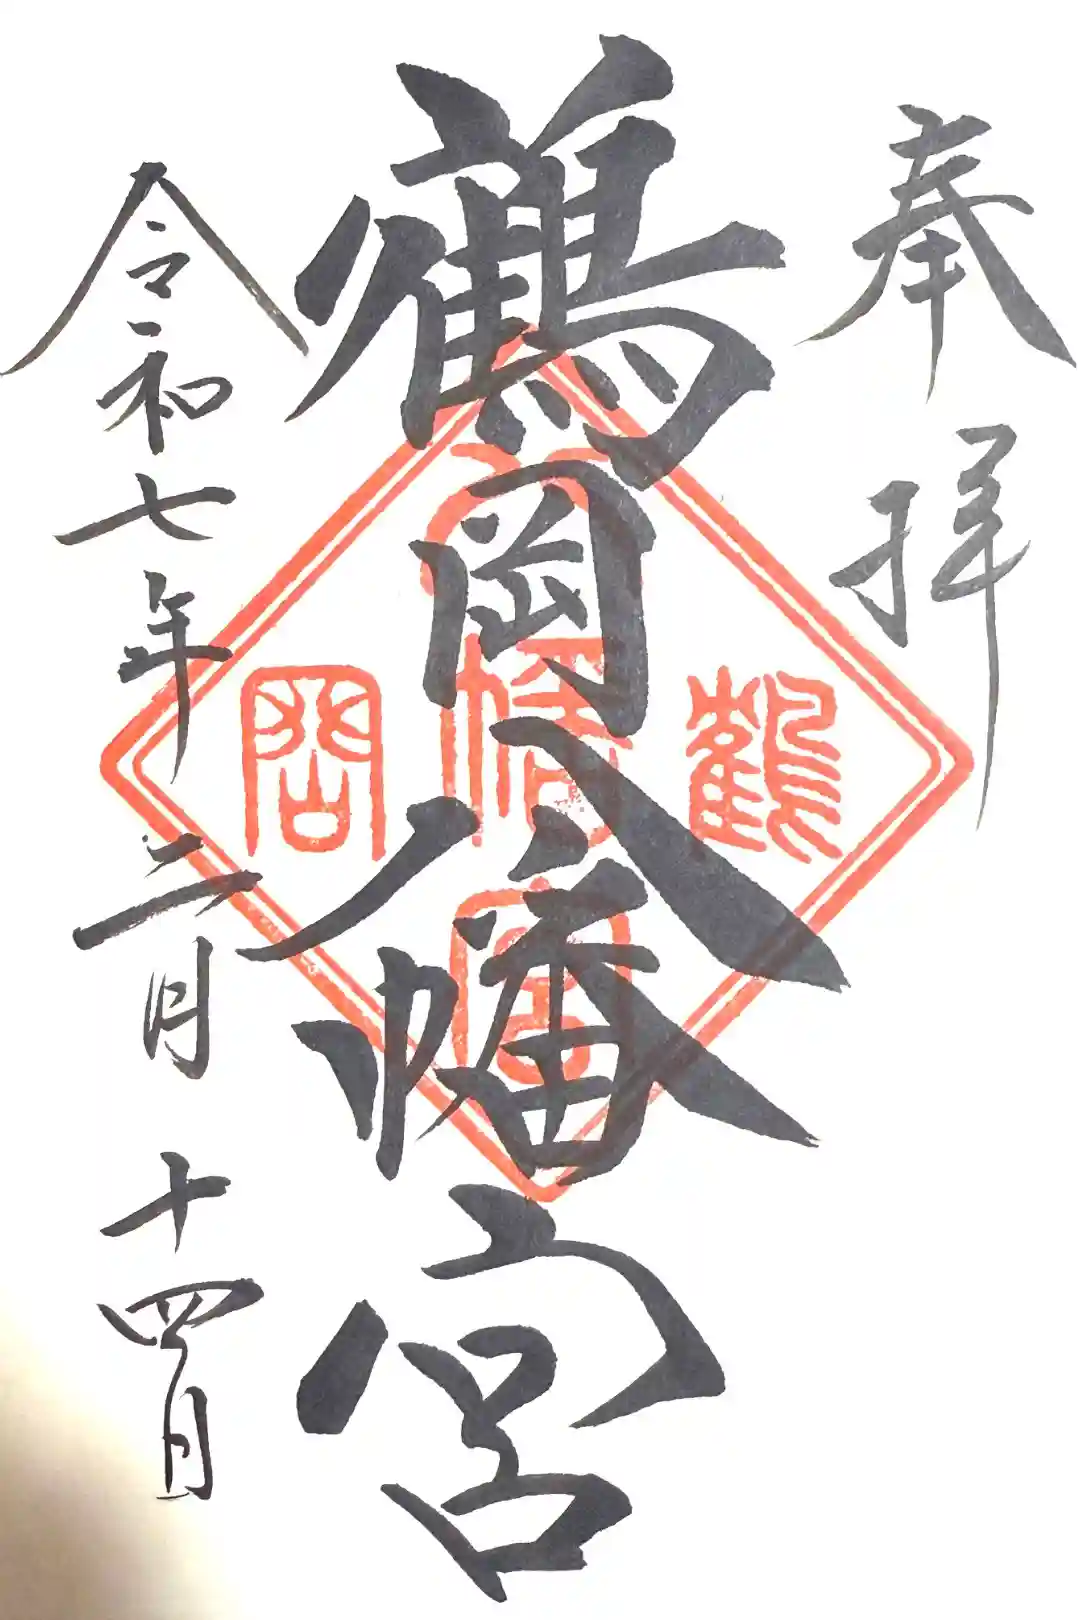 奉拝
鶴岡八幡宮
鶴岡八幡宮
令和七年二月十四日